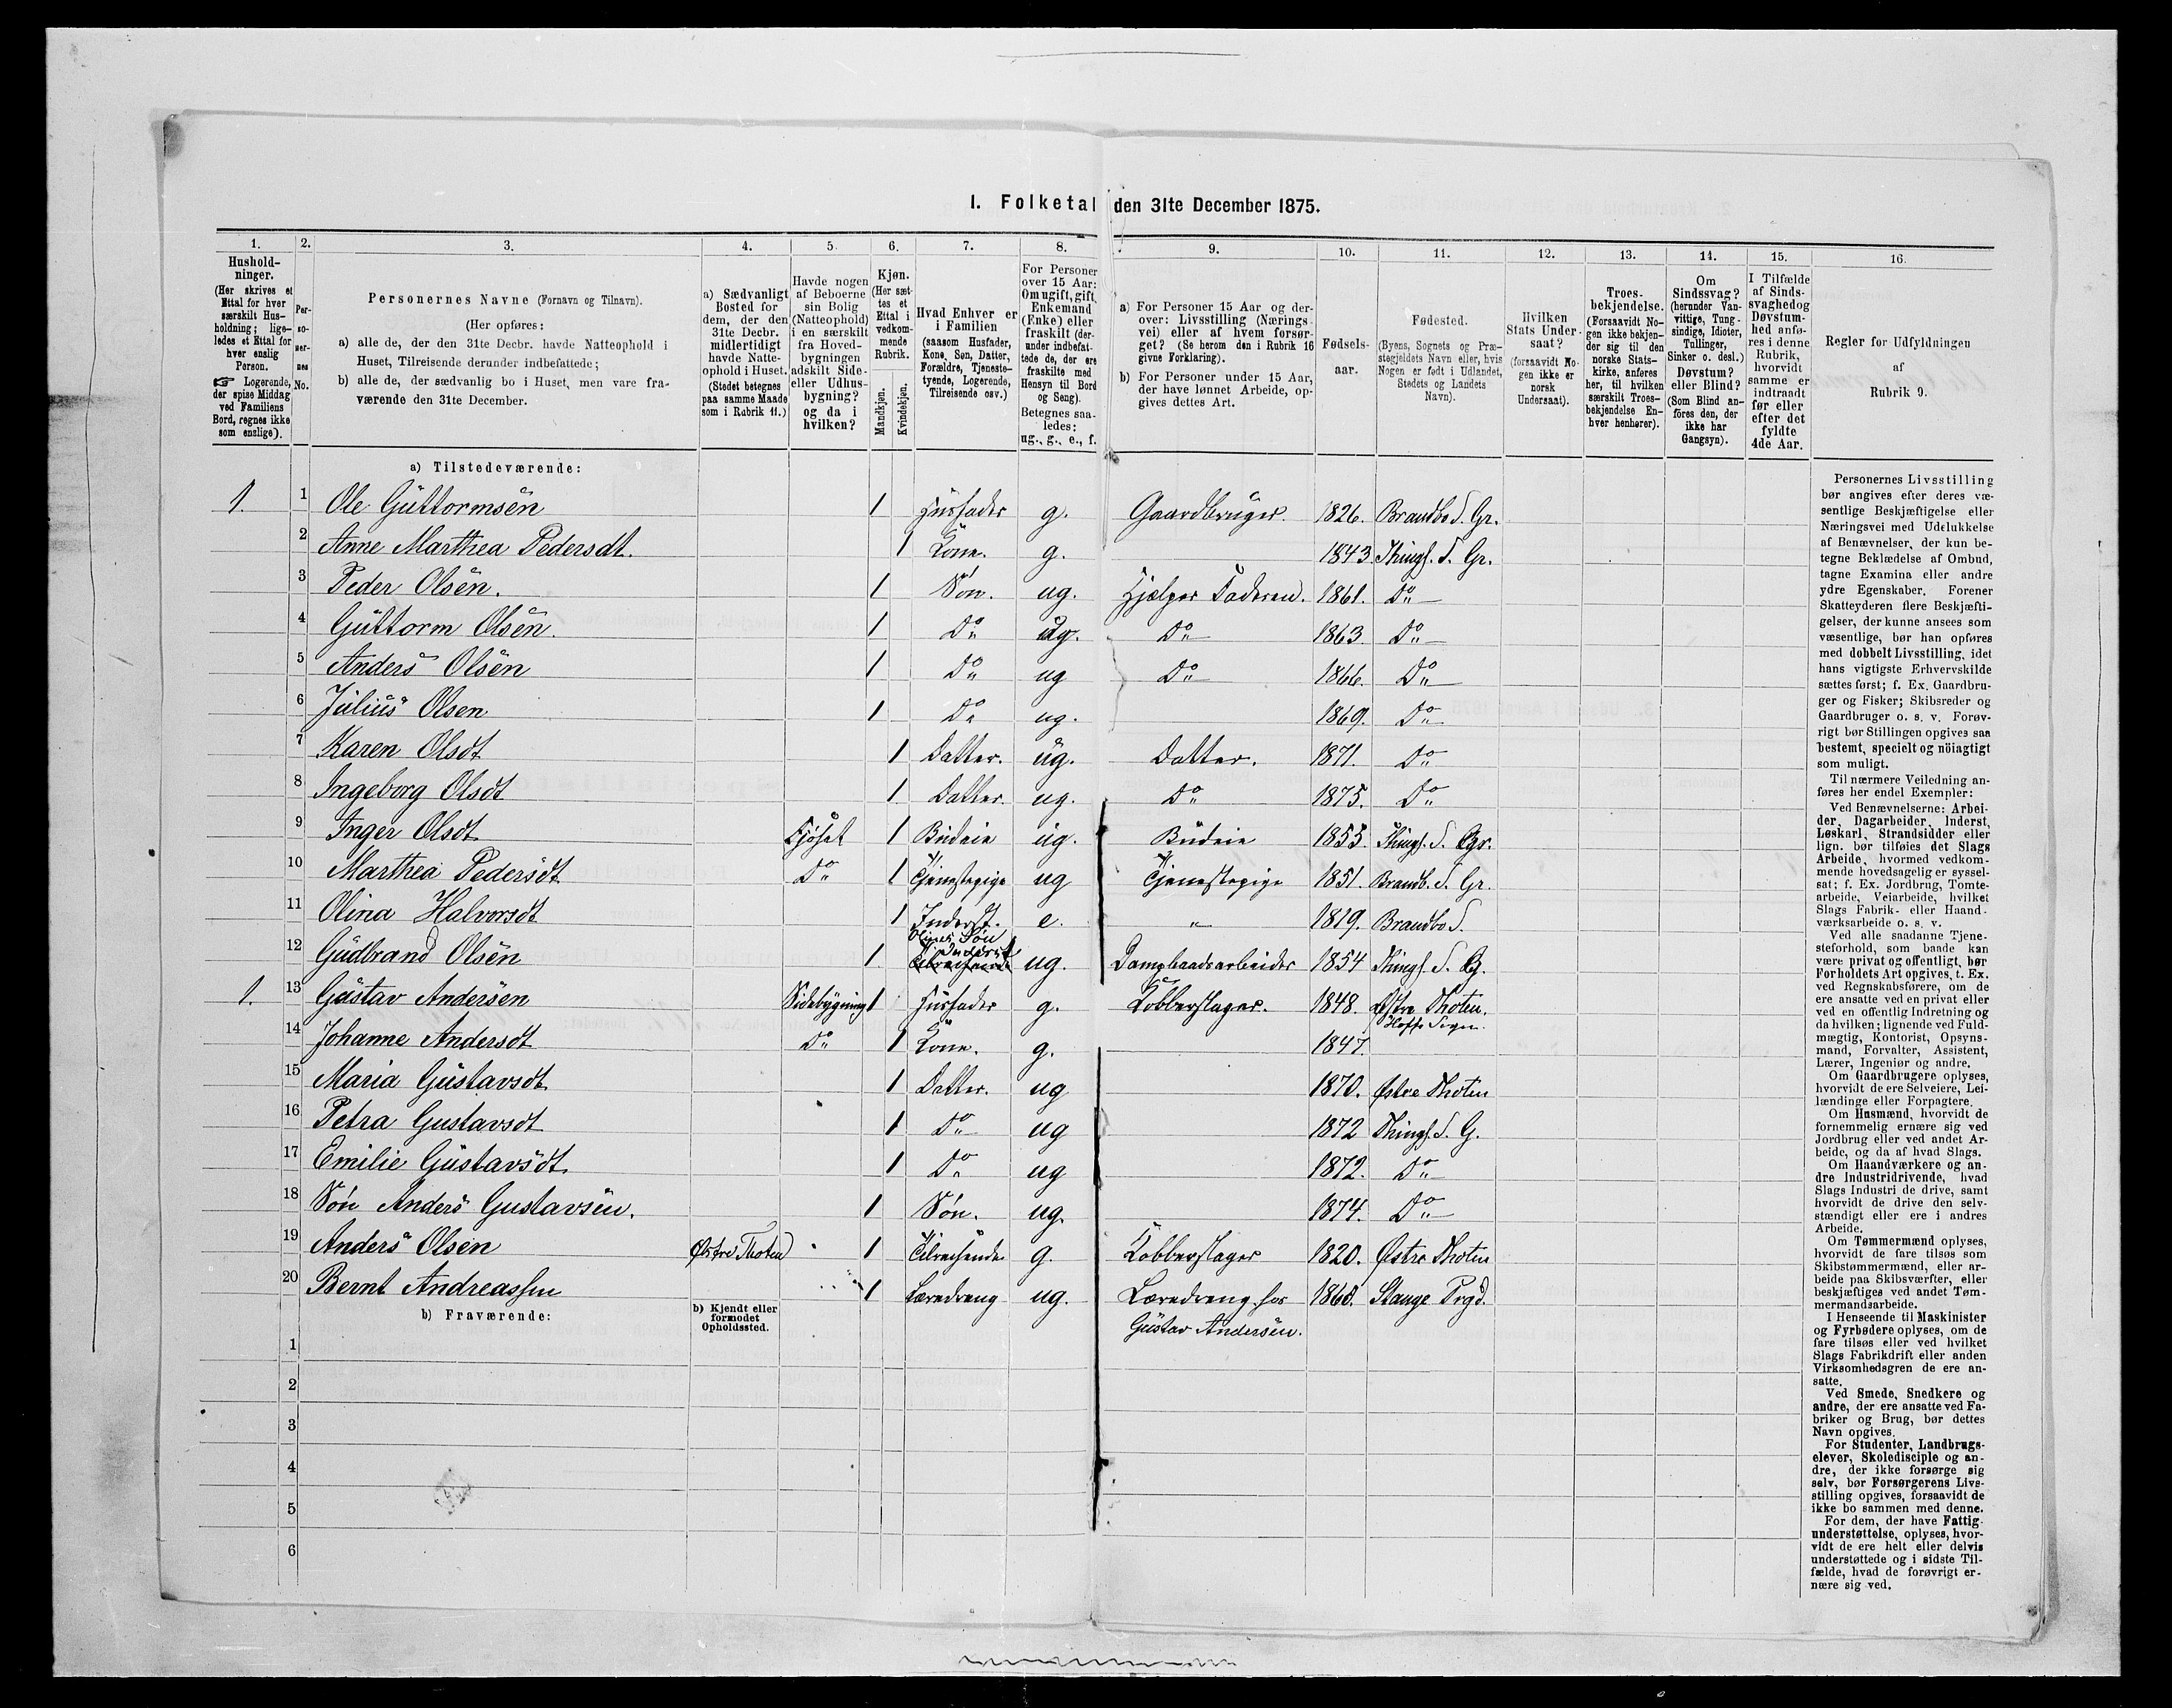 I. Folketal den 31te December 1875.
1. 2. 3. 4. 5. 6. 7. 8. 9. 10. 11. 12. 13. 14. 15. 16.
Hushold-
ninger.
(Her skrives et
Ettal for hver
særskilt Hus-
holdning; lige-
ledes et Ettal for
hver enslig
Person.
☞ Logerende,
der spise Middag
ved Familiens
Bord, regnes ikke
som enslige).
Per-
so-
ner-
nes
No.
Personernes Navne (Fornavn og Tilnavn).
(Her opføres:
a) alle de, der den 31te Decbr. havde Natteophold i
Huset, Tilreisende derunder indbefattede;
b) alle de, der sædvanlig bo i Huset, men vare fra-
værende den 31te December.
a) Sædvanligt
Bosted for
dem, der den
31te Decbr.
midlertidigt
havde Natte-
ophold i Huset.
(Stedet betegnes
paa samme Maade
som i Rubrik 11.)
Havde nogen
af Beboerne
sin Bolig
(Natteophold)
i en særskilt
fra Hoved-
bygningen
adskilt Side-
eller Udhus-
bygning?
og da i
hvilken?
Kjøn.
(Her sæt-
tes et
Ettal i
vedkom-
mende
Rubrik.
Mandkjøn.
Kvindekjøn.
Hvad Enhver er
i Familien
(saasom Husfader,
Kone, Søn, Datter,
Forældre, Tjeneste-
tyende, Logerende,
Tilreisende osv.)
For Personer
over 15 Aar:
Om ugift, gift,
Enkemand
(Enke) eller
fraskilt (der-
under indbefat-
tede de, der ere
fraskilte med
Hensyn til Bord
og Seng).
Betegnes saa-
ledes:
ug., g., e., f.
a) For Personer 15 Aar og der-
over: Livsstilling (Nærings-
vei) eller af hvem forsør-
get? (Se herom den i Rubrik 16
givne Forklaring).
b) For Personer under 15 Aar,
der have lønnet Arbeide, op-
gives dettes Art.
Fødsels-
aar.
Fødested.
(Byens, Sognets og Præ-
stegjeldets Navn eller, hvis
Nogen er født i Udlandet,
Stedets og Landets
Navn).
Hvilken
Stats Under-
saat?
(forsaavidt No-
gen ikke er
norsk
Undersaat).
Troes-
bekjendelse.
(Forsaavidt No-
gen ikke bekjen-
der sig til den
norske Stats-
kirke, anføres
her, til hvilken
særskilt Troes-
bekjendelse En-
hver henhører).
Om
Sindssvag?
(herunder Van-
vittige, Tung-
sindige, Idioter,
Tullinger,
Sinker o. desl.)
Døvstum?
eller Blind?
(Som Blind an-
føres den, der
ikke har
Gangsyn).
I Tilfælde
af Sinds-
svaghed og
Døvstum-
hed anfø-
res i denne
Rubrik,
hvorvidt
samme er
indtraadt
før eller
efter det
fyldte
4de Aar.
Regler for Udfyldningen
af
Rubrik 9.
a) Tilstedeværende:
1. 1 Ole Guttormsen 1 Husfader g. Gaardbruger. 1826. Brandbo S. Gr.
2 Anne Marthea Pedersdt. 1 Kone. g. 1843. Thingl. S. Gr.
3 Peder Olsen. 1 Søn. ug. Hjelper Faderen. 1861. Do
4 Guttorm Olsen. 1 Do ug. Do 1863. Do
5 Anders Olsen 1 Do ug Do 1866. Do
6 Julius Olsen 1 Do ug. 1869. Do
7 Karen Olsdt 1 Datter. ug. Datter. 1871. Do
8 Ingeborg Olsdt 1 Datter. ug. Do 1875. Do
9 Inger Olsdt Fjøset 1 Budeie ug. Budeie 1853. Thingl. S. Gr.
10 Marthea Pedersdt Do 1 Tjenestepige ug Tjenestepige 1851. Brandb. S. Gr.
11 Olina Halvorsdt 1 Inderst. e. " 1819. Brandbo S.
12 Gudbrand Olsen 1 Olines Søn Inderst ug. Dampbaadsarbeider 1854 Thingl. S. G.
1. 13 Gustav Andersen Sidebygning 1 Husfader g. Kobberslager. 1848. Østre Thoten.
Hoffs Sogn.
14 Johanne Andersdt Do 1 Kone. g. 1847.
15 Maria Gustavsdt. 1 Datter. ug 1870. Østre Thoten
16 Petra Gustavsdt 1 Do ug 1872 Thingl. S. G.
17 Emilie Gustavsdt. 1 Do ug 1872. Do
18 Søn Anders Gustavsen. 1 Søn. ug. 1874. Do
19 Anders Olsen Østre Thoten 1 Tilreisende g. Kobberslager 1820. Østre Thoten
20 Bernt Andreassen 1 Læredreng ug. Læredreng hos 1860. Stange Prgd.
Gustav Andersen.
b) Fraværende:
b) Kjendt eller
formodet
Opholdssted.
1
2
3
4
5
6
Personernes Livsstilling
bør angives efter deres væ-
sentlige Beskjæftigelse eller
Næringsvei med Udelukkelse
af Benævnelser, der kun be-
tegne Beklædelse af Ombud,
tagne Examina eller andre
ydre Egenskaber. Forener
Skatteyderen flere Beskjæfti-
gelser, der kunne ansees som
væsentlige, bør han opføres
med dobbelt Livsstilling, idet
hans vigtigste Erhvervskilde
sættes først; f. Ex. Gaardbru-
ger og Fisker; Skibsreder og
Gaardbruger o. s. v. Forøv-
rigt bør Stillingen opgives saa
bestemt, specielt og nöiagtigt
som muligt.
Til nærmere Veiledning an-
føres her endel Exempler:
Ved Benævnelserne: Arbei-
der, Dagarbeider, Inderst,
Løskarl, Strandsidder eller
lign. bør tilføies det Slags
Arbeide, hvormed vedkom-
mende hovedsagelig er syssel-
sat; f. Ex. Jordbrug, Tomte-
arbeide, Veiarbeide, hvilket
Slags Fabrik- eller Haand-
værksarbeide o. s. v.
Ved alle saadanne Tjene-
steforhold, som baade kan
være privat og offentligt, bør
Forholdets Art opgives, t. Ex.
ved Regnskabsførere, om de
ere ansatte ved en privat eller
ved en offentlig Indretning og
da hvilken; lignende ved Fuld-
mægtig, Kontorist, Opsyns-
mand, Forvalter, Assistent,
Lærer, Ingeniør og andre.
Om Gaardbrugere oplyses,
hvorvidt de ere Selveiere, Lei-
lændinge eller Forpagtere.
Om Husmænd, hvorvidt de
fornemmelig ernære sig ved
Jordbrug eller ved andet Ar-
beide, og da af hvad Slags.
Om Haandværkere og an-
dre Industridrivende, hvad
Slags Industri de drive, samt
hvorvidt de drive den selv-
stændigt eller ere i andres
Arbeide.
Om Tømmermænd oplyses,
hvorvidt de fare tilsøs som
Skibstømmermænd, eller ar-
beide paa Skibsværfter, eller
beskjæftiges ved andet Tøm-
mermandsarbeide.
I Henseende til Maskinister
og Fyrbødere oplyses, om de
fare tilsøs eller ved hvilket
Slags Fabrikdrift eller anden
Virksomhedsgren de ere an-
satte.
Ved Smede, Snedkere og
andre, der ere ansatte ved Fa-
briker og Brug, bør dettes
Navn opgives.
For Studenter, Landbrugs-
elever, Skoledisciple og an-
dre, der ikke forsørge sig
selv, bør Forsørgerens Livs-
stilling opgives, forsaavidt de
ikke bo sammen med denne.
For dem, der have Fattig-
understøttelse, oplyses, hvor-
vidt de ere helt eller delvis
understøttede og i sidste Til-
fælde, hvad de forøvrigt er-
nære sig ved.